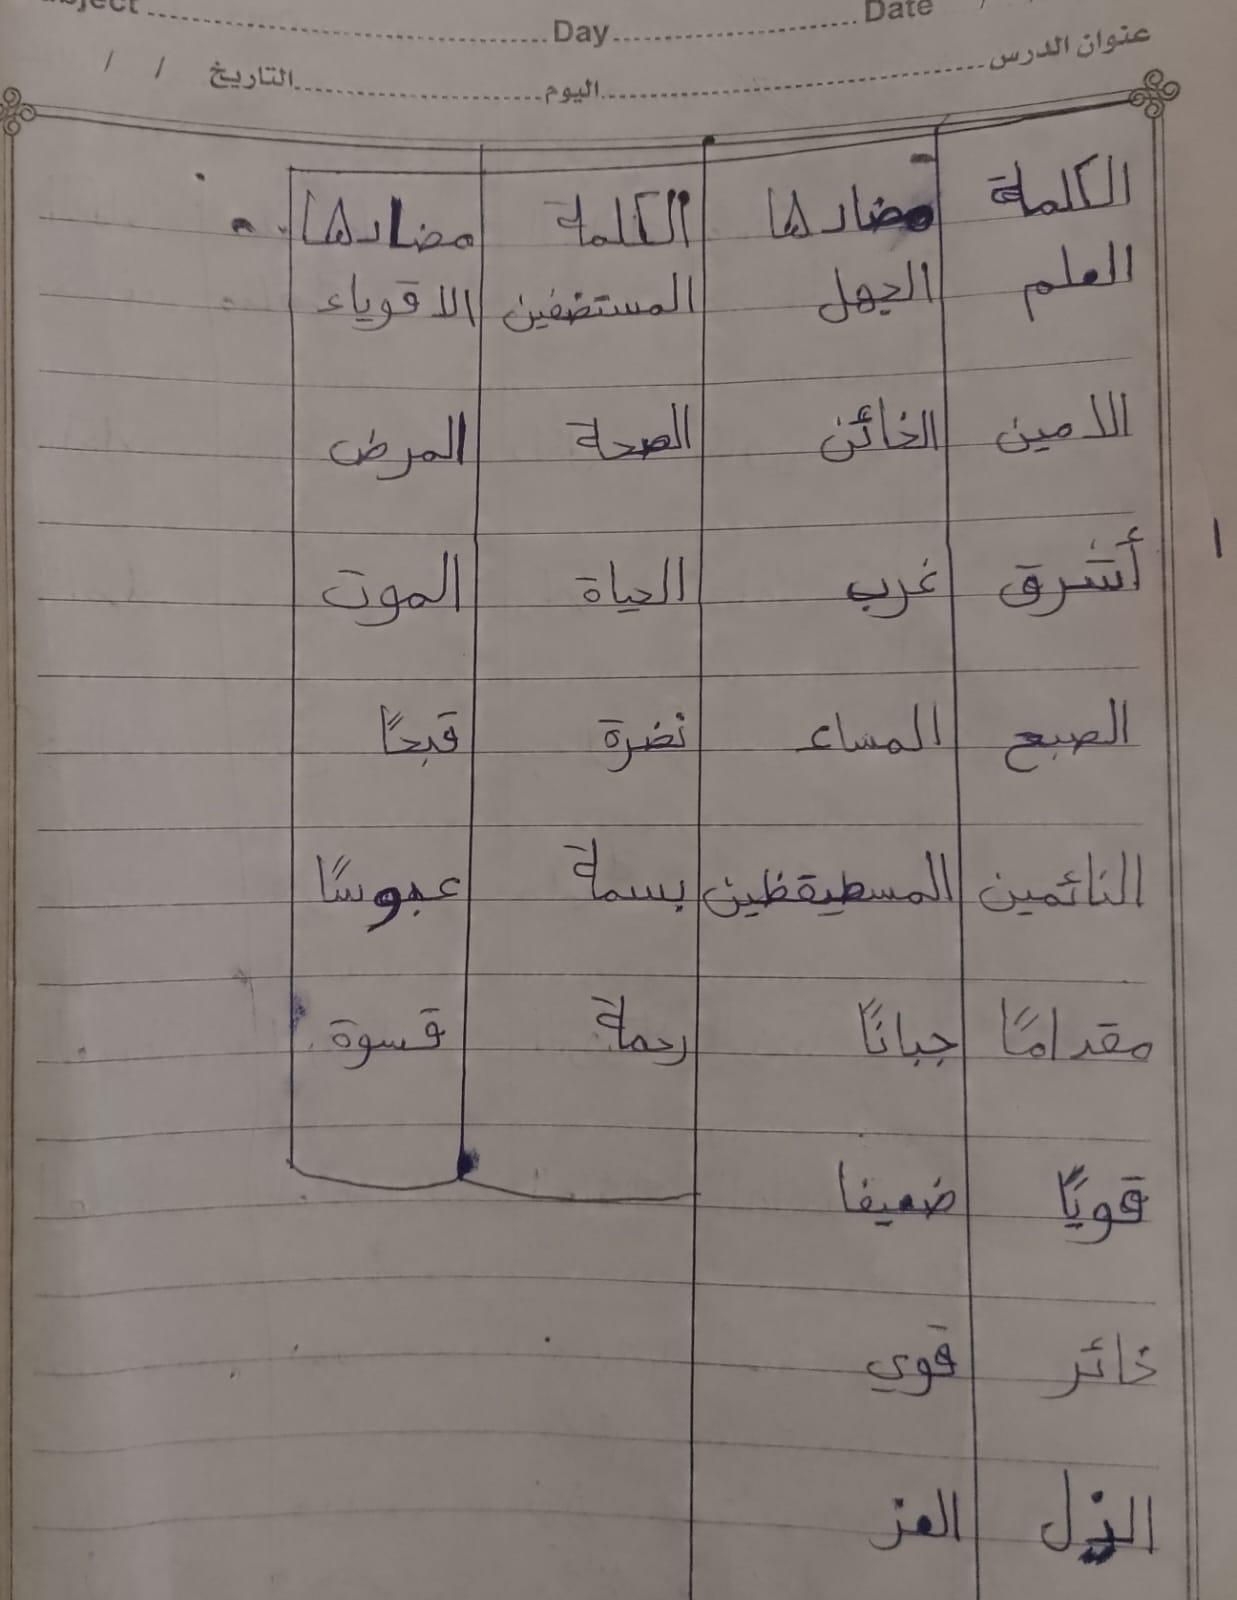 Day Date
عنوان الدرس اليوم التاريخ / /
الكلمة مضادها الكلمة مضادها
العلم الجهل المستضفين الاقوياء
الامين الخائن الصحة المرض
أشرق غرب الحياة الموت
الصبح المساء نضرة قبحًا
النائمين المسطيقظين بسمة عبوسًا
مقدامًا جبانًا رحمة قسوة
قويًا ضعيفا
خائر قوي
الذل العز